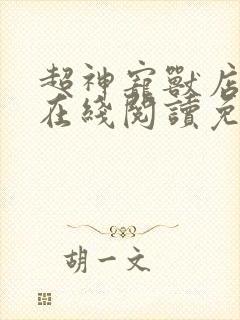 超神寵獸店
在綫閱讀免
胡一文